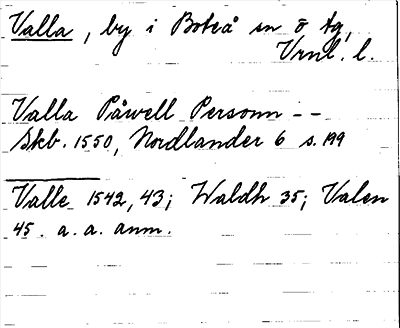 Valla, by i Boteå sn ö tg,
Vrnl. l.
Valla Påwell Personn --
Skb. 1550, Nordlander 6 s. 199
Valle 1542, 43; Waldh 35; Valen
45. a. a. anm.